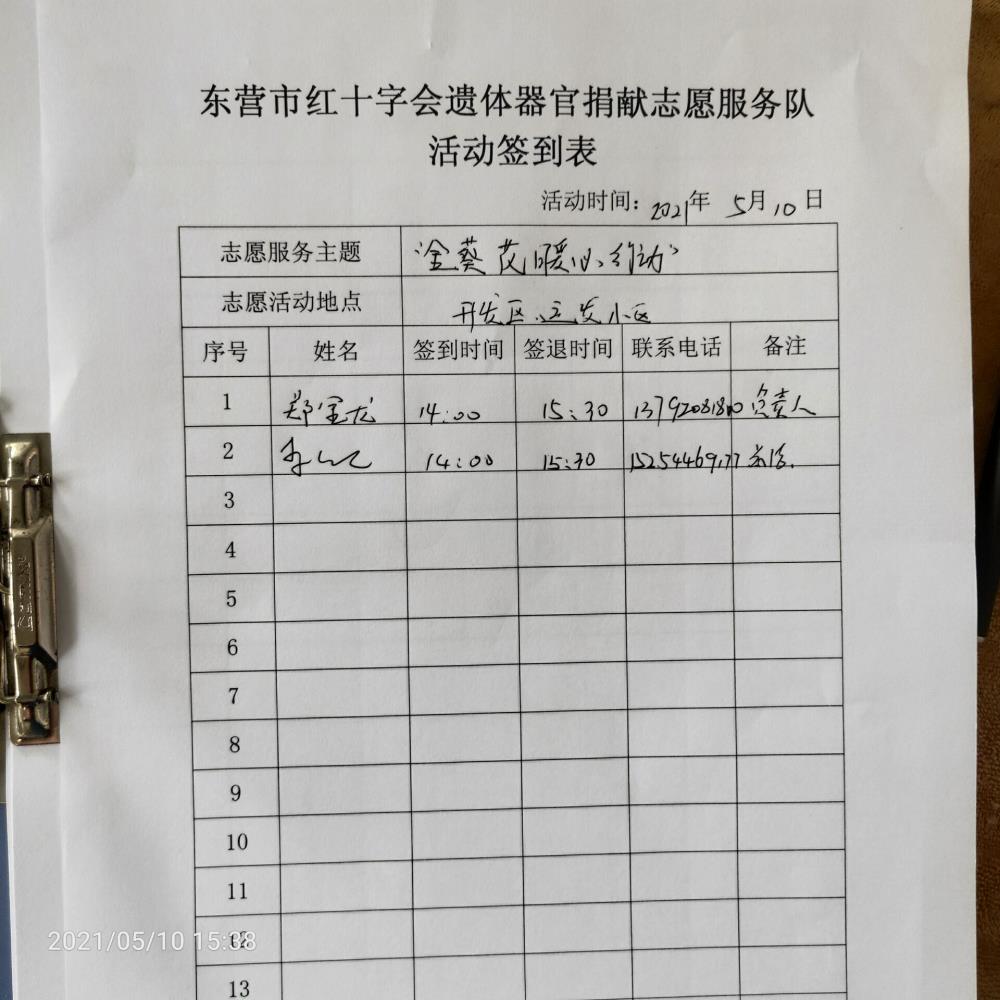 东营市红十字会遗体器官捐献志愿服务队
活动签到表
活动时间：2021年 5月10日
志愿服务主题 "金葵花暖心行动"
志愿活动地点 开发区运发小区
序号 姓名 签到时间 签退时间 联系电话 备注
1 郑宝龙 14:00 15:30 负责人
2 14:00 15:30
3
4
5
6
7
8
9
10
11
12
13
2021/05/10 15:38